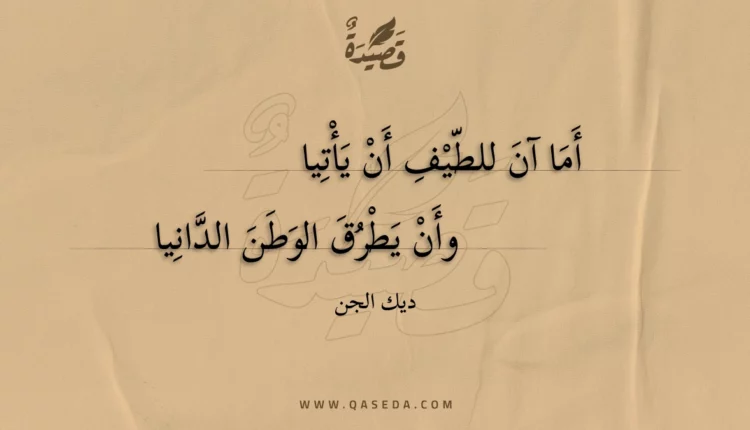 قَصِيدَةٌ
أَمَا آنَ للطّيْفِ أَنْ يَأْتِيا
وأَنْ يَطْرُقَ الوَطَنَ الدَّانِيا
ديك الجن
WWW.QASEDA.COM